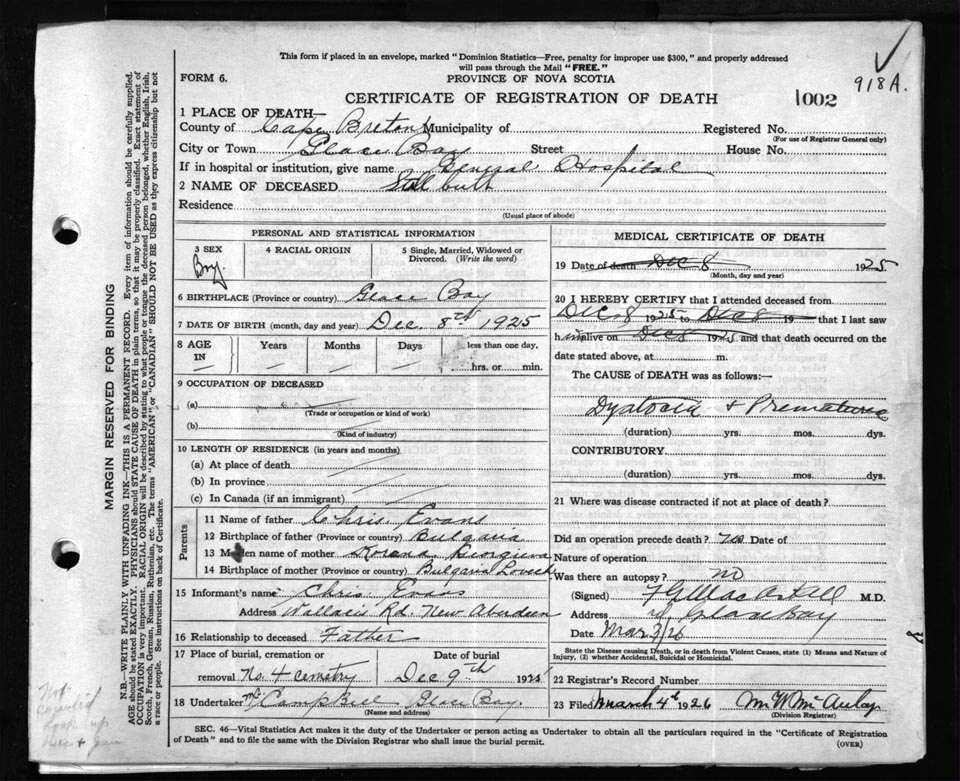 This form if placed in an envelope, marked "Dominion Statistics—Free, penalty for improper use $300," and properly addressed
will pass through the Mail "FREE."
918A.
FORM 6.
PROVINCE OF NOVA SCOTIA
CERTIFICATE OF REGISTRATION OF DEATH
1002
1 PLACE OF DEATH—
County of Cape Breton Municipality of Registered No.
(For use of Registrar General only)
City or Town Glace Bay Street House No.
If in hospital or institution, give name General Hospital
2 NAME OF DECEASED Still birth
Residence
(Usual place of abode)
PERSONAL AND STATISTICAL INFORMATION
3 SEX
Boy
4 RACIAL ORIGIN
5 Single, Married, Widowed or
Divorced. (Write the word)
6 BIRTHPLACE (Province or country) Glace Bay
7 DATE OF BIRTH (month, day and year) Dec. 8th 1925
8 AGE
IN
Years
Months
Days
If less than one day,
hrs. or min.
9 OCCUPATION OF DECEASED
(a)
(Trade or occupation or kind of work)
(b)
(Kind of industry)
10 LENGTH OF RESIDENCE (in years and months)
(a) At place of death
(b) In province
(c) In Canada (if an immigrant)
Parents
11 Name of father Chris. Evans
12 Birthplace of father (Province or country) Bulgaria
13 Maiden name of mother Georgieva
14 Birthplace of mother (Province or country) Bulgaria Lovech
15 Informant's name Chris. Evans
Address Wallace Rd. New Aberdeen
16 Relationship to deceased Father
17 Place of burial, cremation or
removal No. 4 cemetry
Date of burial
Dec 9th 1925
18 Undertaker McCampbell Glace Bay.
(Name and address)
MEDICAL CERTIFICATE OF DEATH
19 Date of death Dec 8 1925
(Month, day and year)
20 I HEREBY CERTIFY that I attended deceased from
Dec. 8 1925 to Dec 8 19 that I last saw
h alive on Dec 8 1925 and that death occurred on the
date stated above, at m.
The CAUSE of DEATH was as follows:—
Dystocia + Premature
(duration) yrs. mos. dys.
CONTRIBUTORY.
(duration) yrs. mos. dys.
21 Where was disease contracted if not at place of death?
Did an operation precede death? no Date of
Nature of operation
Was there an autopsy? no
(Signed) M.D.
Address Glace Bay
Date Mar 3/26
State the Disease causing Death, or in death from Violent Causes, state (1) Means and Nature of
Injury, (2) whether Accidental, Suicidal or Homicidal.
22 Registrar's Record Number
23 Filed March 4th 1926 M W McAulay
(Division Registrar)
SEC. 46—Vital Statistics Act makes it the duty of the Undertaker or person acting as Undertaker to obtain all the particulars required in the "Certificate of Registration
of Death" and to file the same with the Division Registrar who shall issue the burial permit.
(OVER)
MARGIN RESERVED FOR BINDING
N.B.—WRITE PLAINLY WITH UNFADING INK—THIS IS A PERMANENT RECORD. Every item of information should be carefully supplied.
AGE should be stated EXACTLY. PHYSICIANS should STATE CAUSE OF DEATH in plain terms, so that it may be properly classified. Exact statement of
OCCUPATION is very important. RACIAL ORIGIN will be described by stating to what people or tongue the deceased person belonged, whether English, Irish,
Scotch, French, German, Russian, Ruthenian, etc. The terms "AMERICAN" or "CANADIAN" SHOULD NOT BE USED as they express citizenship but not
a race or people. See instructions on back of Certificate.
Not
look up